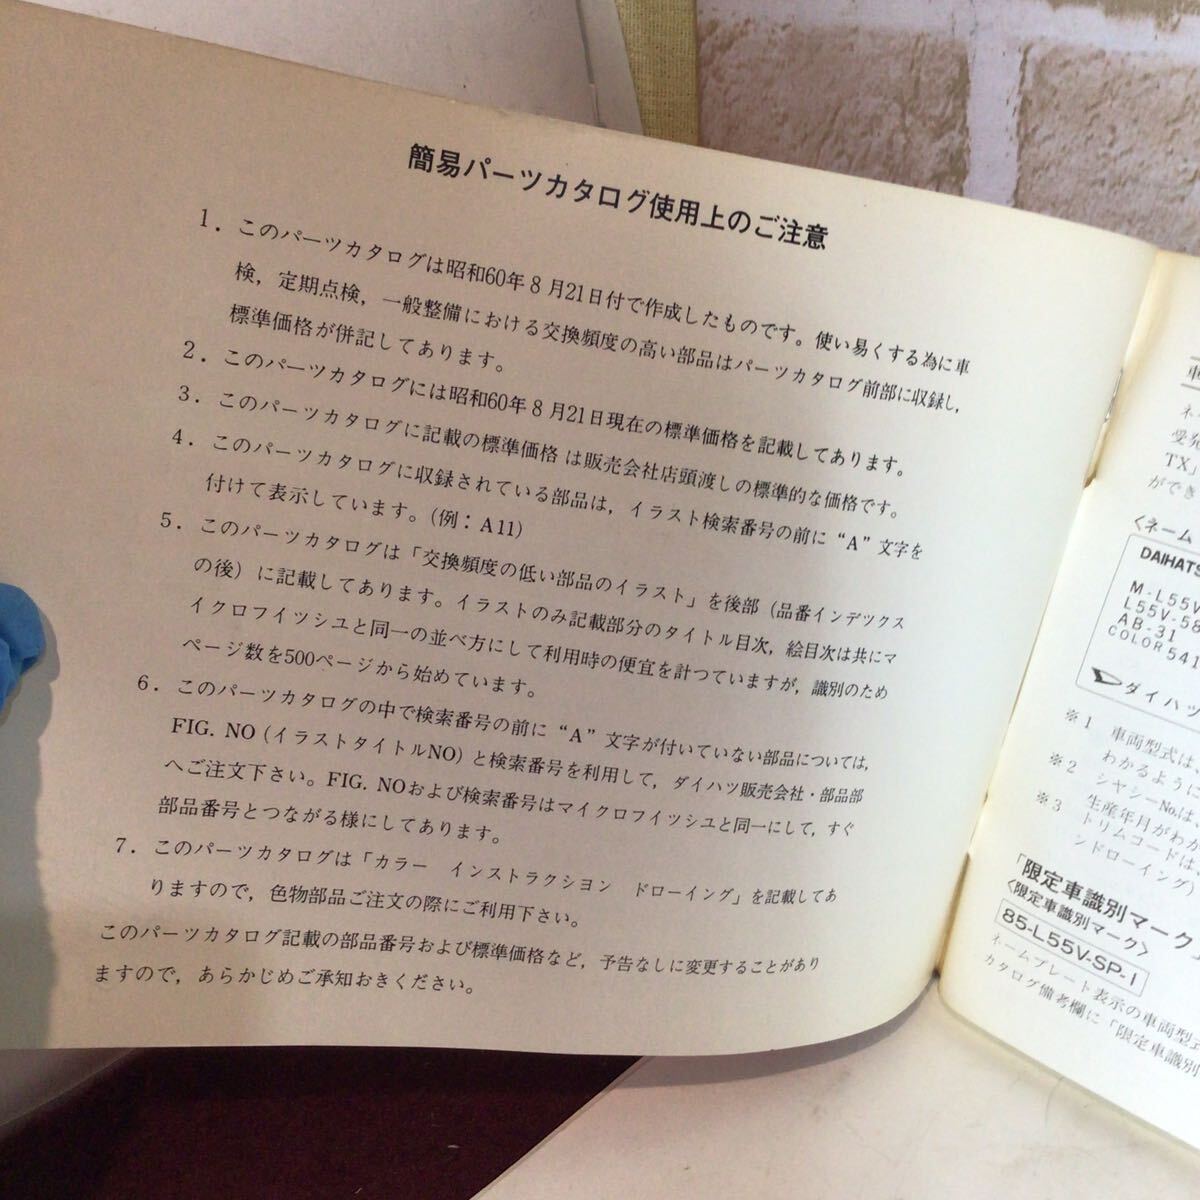 簡易パーツカタログ使用上のご注意
1．このパーツカタログは昭和60年8月21日付で作成したものです。使い易くする為に車
検，定期点検，一般整備における交換頻度の高い部品はパーツカタログ前部に収録し，
標準価格が併記してあります。
2．このパーツカタログには昭和60年8月21日現在の標準価格を記載してあります。
3．このパーツカタログに記載の標準価格は販売会社店頭渡しの標準的な価格です。
4．このパーツカタログに収録されている部品は，イラスト検索番号の前に“A”文字を
付けて表示しています。(例：A11)
5．このパーツカタログは「交換頻度の低い部品のイラスト」を後部（品番インデツクス
の後）に記載してあります。イラストのみ記載部分のタイトル目次，絵目次は共にマ
イクロフイツシユと同一の並べ方にして利用時の便宜を計つていますが，識別のため
ページ数を500ページから始めています。
6．このパーツカタログの中で検索番号の前に“A”文字が付いていない部品については，
FIG. NO（イラストタイトルNO）と検索番号を利用して，ダイハツ販売会社・部品部
へご注文下さい。FIG. NOおよび検索番号はマイクロフイツシユと同一にして，すぐ
部品番号とつながる様にしてあります。
7．このパーツカタログは「カラー　インストラクシヨン　ドローイング」を記載してあ
りますので，色物部品ご注文の際にご利用下さい。
このパーツカタログ記載の部品番号および標準価格など，予告なしに変更することがあり
ますので，あらかじめご承知おきください。
車
ネ
受発
TX.
ができ
〈ネーム
DAIHATS
M-L55V
L55V-58
AB-31
COLOR 541
ダイハツ
※1 車両型式は，
わかるように
※2 シヤシーNo.は
生産年月がわか
※3 トリムコードは
ンドローイング)
「限定車識別マーク
〈限定車識別マーク〉
85-L55V-SP-I
ネームプレート表示の車両型式
カタログ備考欄に「限定車識別